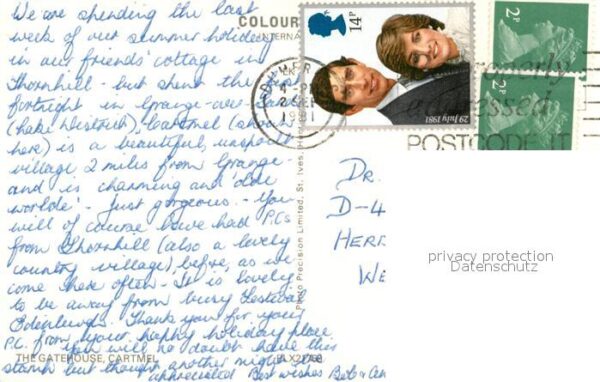 We are spending the last
week of our summer holiday
in our friends' cottage in
Thornhill - but spent the
fortnight in Grange-over-Sands
(Lake District). Cartmel (shown
here) is a beautiful, unspoilt
village 2 miles from Grange -
and is charming and 'olde
worlde' - Just gorgeous - You
will of course have had P.Cs
from Thornhill (also a lovely
country village), before, as we
come here often - It is lovely
to be away from busy Festival
Edinburgh. Thank you for your
P.C. from your happy holiday place
You will no doubt have this
stamp but thought another might be
appreciated Best wishes Bob &
THE GATEHOUSE, CARTMEL
PLX2
COLOUR
INTERNA
Photo Precision Limited, St. Ives, H
14P
29 July 1981
2P
2P
SEP
1981
properly
addressed
POSTCODE IT
DR.
D-4
HER
WE
privacy protection
Datenschutz